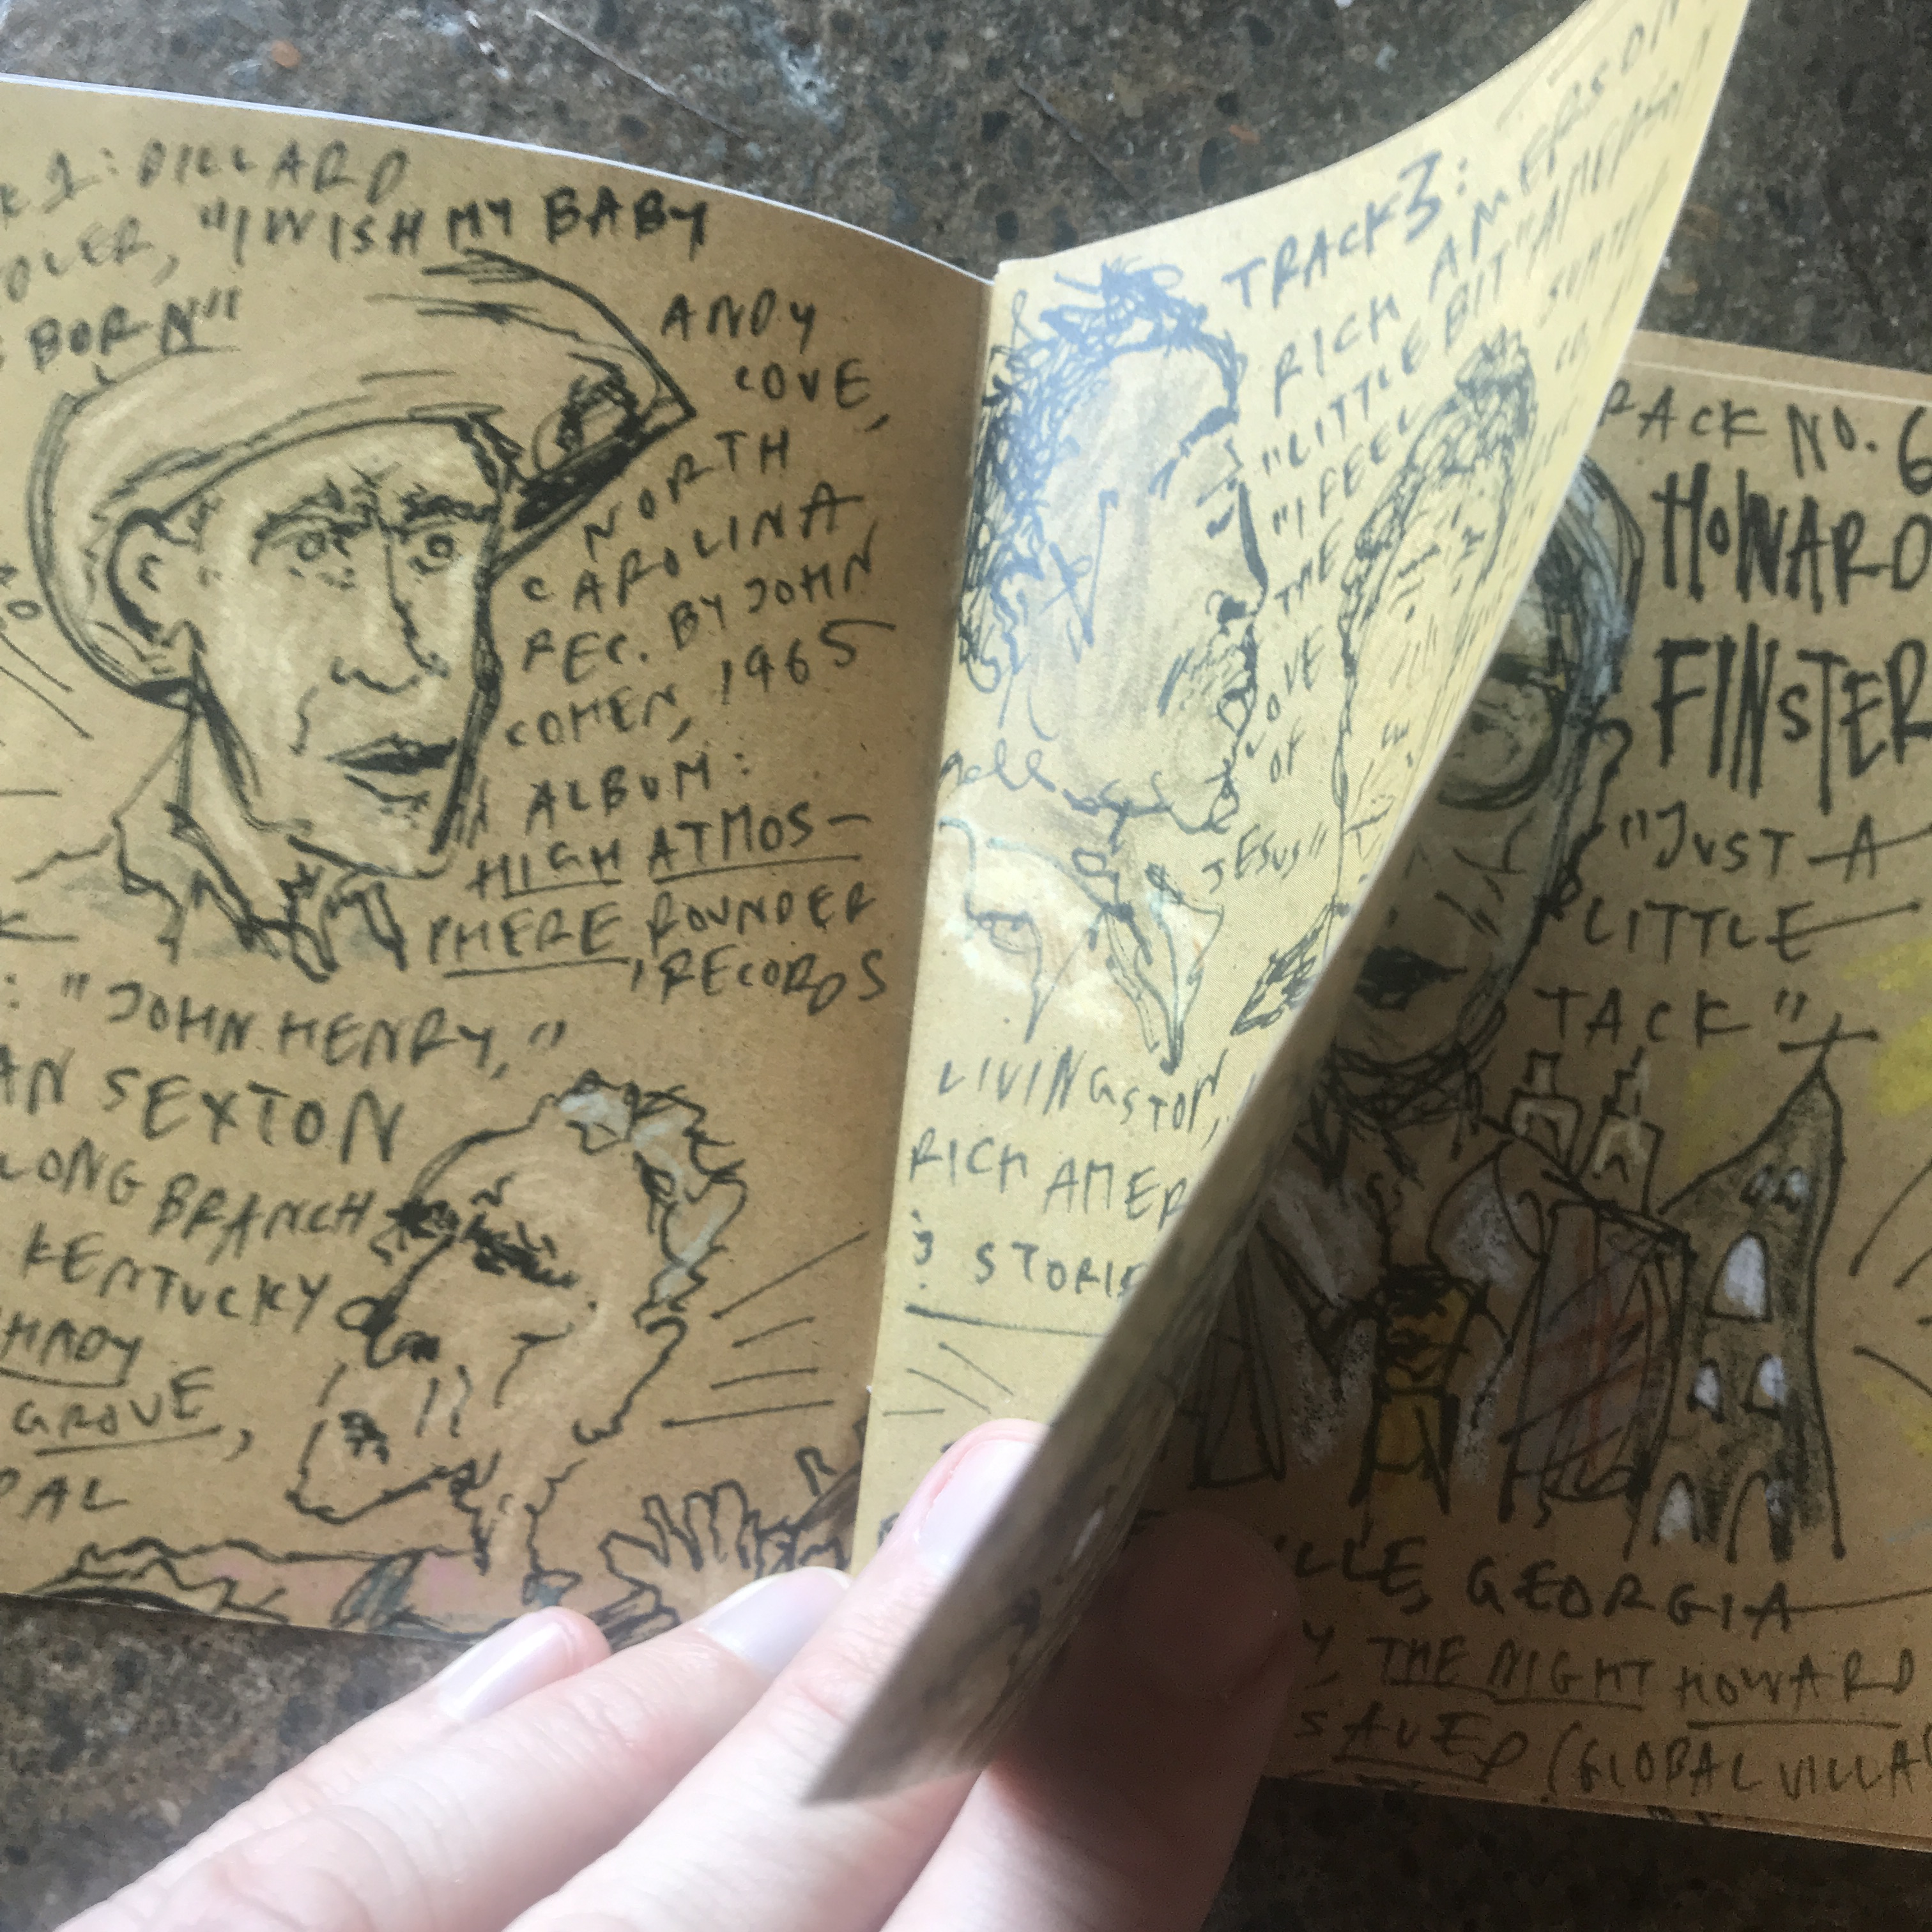 1: DILLARD
"I WISH MY BABY
BORN"
ANDY
COVE,
NORTH
CAROLINA
REC. BY JOHN
COHEN, 1965
ALBUM:
HIGH ATMOS-
PHERE, ROUNDER
RECORDS
: "JOHN HENRY,"
SEXTON
LONG BRANCH
KENTUCKY
GROVE,
TRACK 3:
RICH AMERSON
"LITTLE BIT"
"I FEEL
THE
LOVE
OF
JESUS"
LIVINGSTON,
RICH AMER
STORIE
RACK NO. 6
HOWARD
FINSTER
"JUST A
LITTLE
TACK"
ILLE, GEORGIA
THE NIGHT HOWARD
SAVED (GLOBAL VILLA